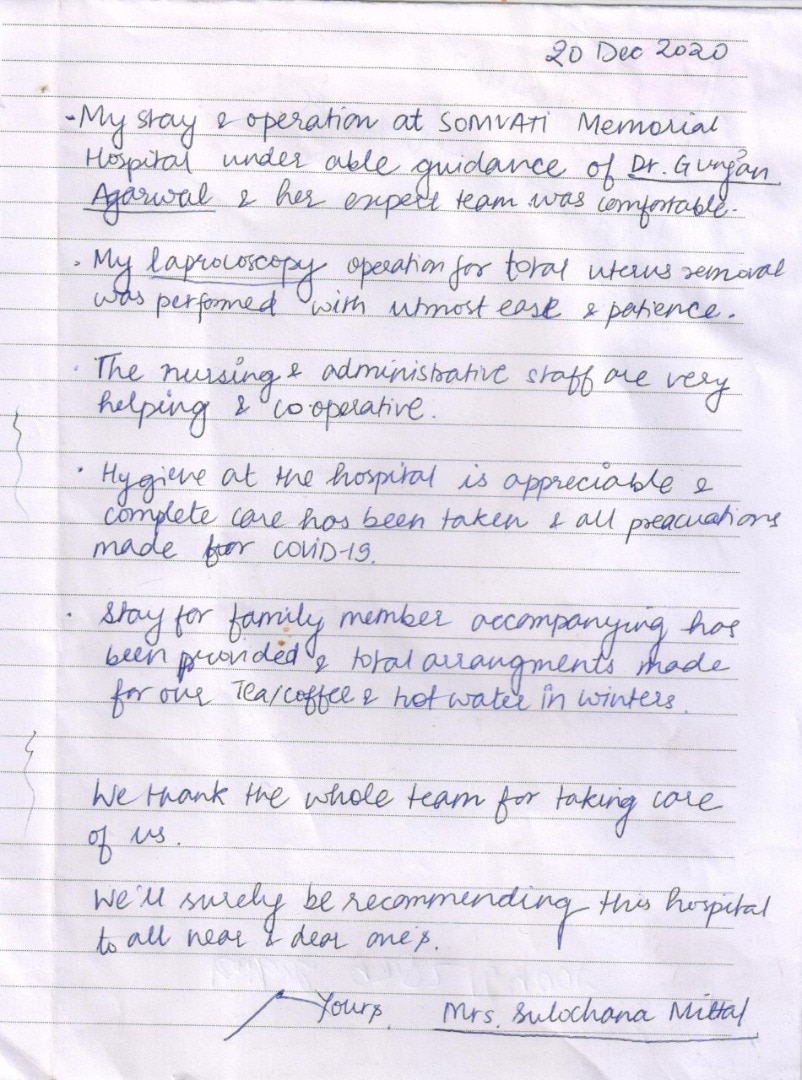 20 Dec 2020
- My stay & operation at SOMVATI Memorial
Hospital under able guidance of Dr. Gunjan
Agarwal & her expert team was comfortable.
. My laprocoscopy operation for total uterus removal
was performed with utmost ease & patience.
. The nursing & administrative staff are very
helping & co operative.
. Hygiene at the hospital is appreciable &
complete care has been taken & all preacuations
made for COVID-19.
. Stay for family member accompanying has
been provided & total arrangments made
for our Tea/coffee & hot water in winters.
We thank the whole team for taking care
of us.
We'll surely be recommending this hospital
to all near & dear one's.
Yours Mrs. Sulochana Mittal